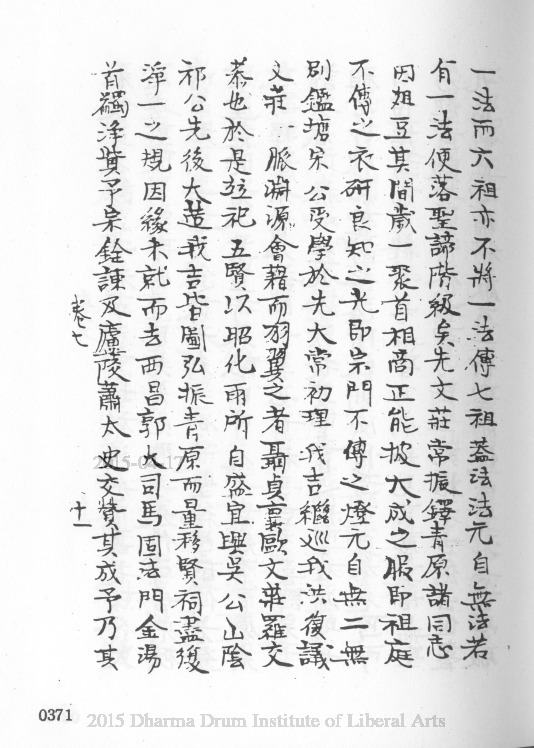 一法而六祖亦不將一法傳七祖蓋法法元自無法若
有一法便落聖諦階級矣先文莊常振鐸青原諸同志
因俎豆其間歲一聚首相商正能披大成之服即祖庭
不傳之衣研良知之光即宗門不傳之燈元自無二無
別鑑塘宋公受學於先大常初理我吉繼巡我洪復議
文莊 脈淵源會藉而羽翼之者聶貞襄歐文莊羅文
恭也於是竝祀五賢以昭化雨所自盛宜興吳公山陰
祁公先後大蒞我吉皆圖弘振青原而量移賢祠盡復
淨一之規因緣未就而去西昌郭大司馬固法門金湯
首蠲淨貲予宗銓諫及廬陵蕭太史交贊其成予乃其
卷七
十一
2015-04-17
0371
2015 Dharma Drum Institute of Liberal Arts